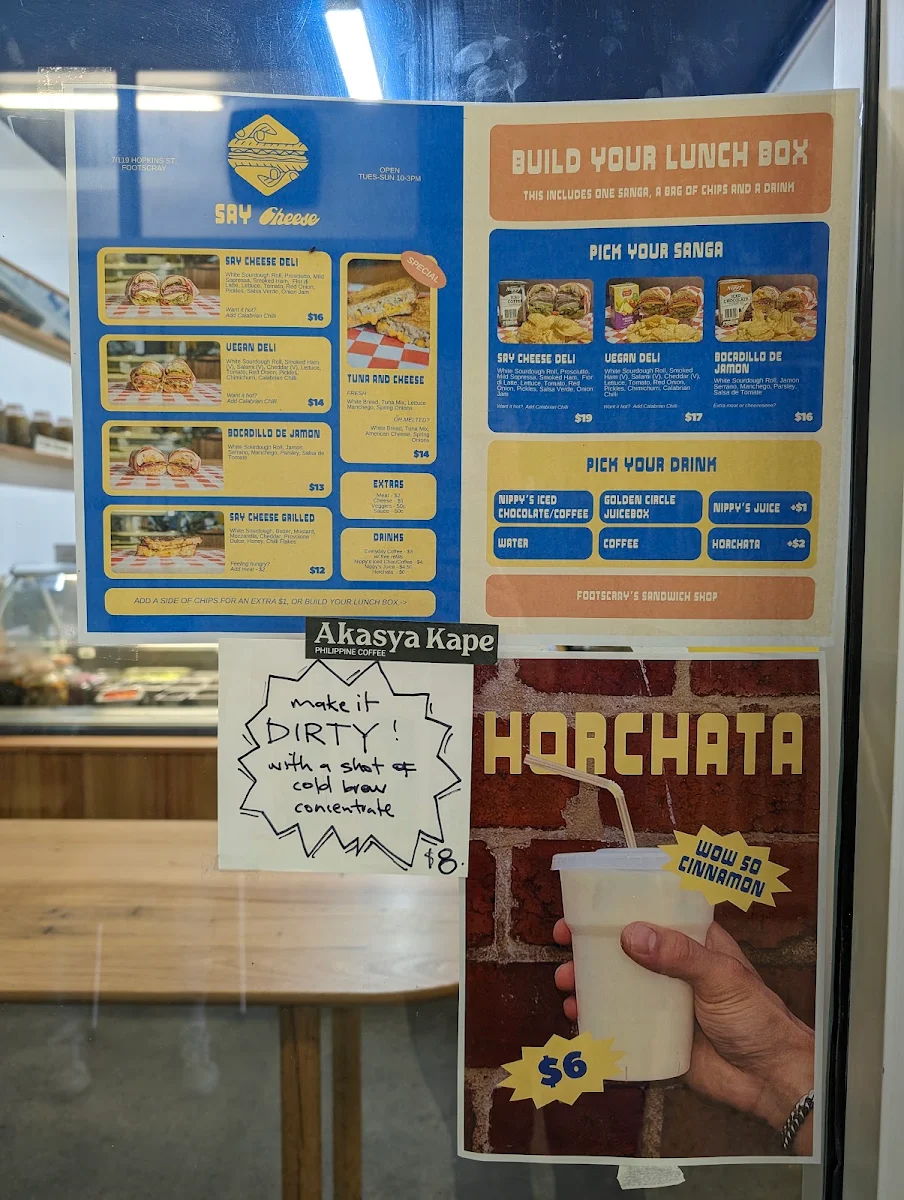 7/119 HOPKINS ST
FOOTSCRAY
OPEN
TUES-SUN 10-3PM
SAY Cheese
SAY CHEESE DELI
White Sourdough Roll, Prosciutto, Mild
Sopressa, Smoked Ham, Fior di
Latte, Lettuce, Tomato, Red Onion,
Pickles, Salsa Verde, Onion Jam
Want it hot?
Add Calabrian Chilli
$16
VEGAN DELI
White Sourdough Roll, Smoked Ham
(V), Salami (V), Cheddar (V), Lettuce,
Tomato, Red Onion, Pickles,
Chimichurri, Calabrian Chilli
Want it hot?
Add Calabrian Chilli
$14
BOCADILLO DE JAMON
White Sourdough Roll, Jamon
Serrano, Manchego, Parsley, Salsa de
Tomate
$13
SAY CHEESE GRILLED
White Sourdough, Butter, Mustard,
Mozzarella, Cheddar, Provolone
Dolce, Honey, Chilli Flakes
Feeling hungry?
Add Meat - $2
$12
SPECIAL
TUNA AND CHEESE
FRESH
White Bread, Tuna Mix, Lettuce
Manchego, Spring Onions
OR MELTED?
White Bread, Tuna Mix,
American Cheese, Spring
Onions
$14
EXTRAS
Meat - $2
Cheese - $1
Veggers - 50c
Sauce - 50c
DRINKS
Everyday Coffee - $3
w/ free refills
Nippy's Iced Choc/Coffee - $4
Nippy's Juice - $4.50
Horchata - $6
ADD A SIDE OF CHIPS FOR AN EXTRA $1, OR BUILD YOUR LUNCH BOX ->
BUILD YOUR LUNCH BOX
THIS INCLUDES ONE SANGA, A BAG OF CHIPS AND A DRINK
PICK YOUR SANGA
SAY CHEESE DELI
White Sourdough Roll, Prosciutto,
Mild Sopressa, Smoked Ham, Fior
di Latte, Lettuce, Tomato, Red
Onion, Pickles, Salsa Verde, Onion
Jam
Want it hot? Add Calabrian Chilli
$19
VEGAN DELI
White Sourdough Roll, Smoked
Ham (V), Salami (V), Cheddar (V),
Lettuce, Tomato, Red Onion,
Pickles, Chimichurri, Calabrian
Chilli
Want it hot? Add Calabrian Chilli
$17
BOCADILLO DE
JAMON
White Sourdough Roll, Jamon
Serrano, Manchego, Parsley,
Salsa de Tomate
Extra meat or cheeeeese?
$16
PICK YOUR DRINK
NIPPY'S ICED
CHOCOLATE/COFFEE
GOLDEN CIRCLE
JUICEBOX
NIPPY'S JUICE +$1
WATER
COFFEE
HORCHATA +$2
FOOTSCRAY'S SANDWICH SHOP
Akasya Kape
PHILIPPINE COFFEE
make it
DIRTY!
with a shot of
cold brew
concentrate
$8.
HORCHATA
WOW SO
CINNAMON
$6